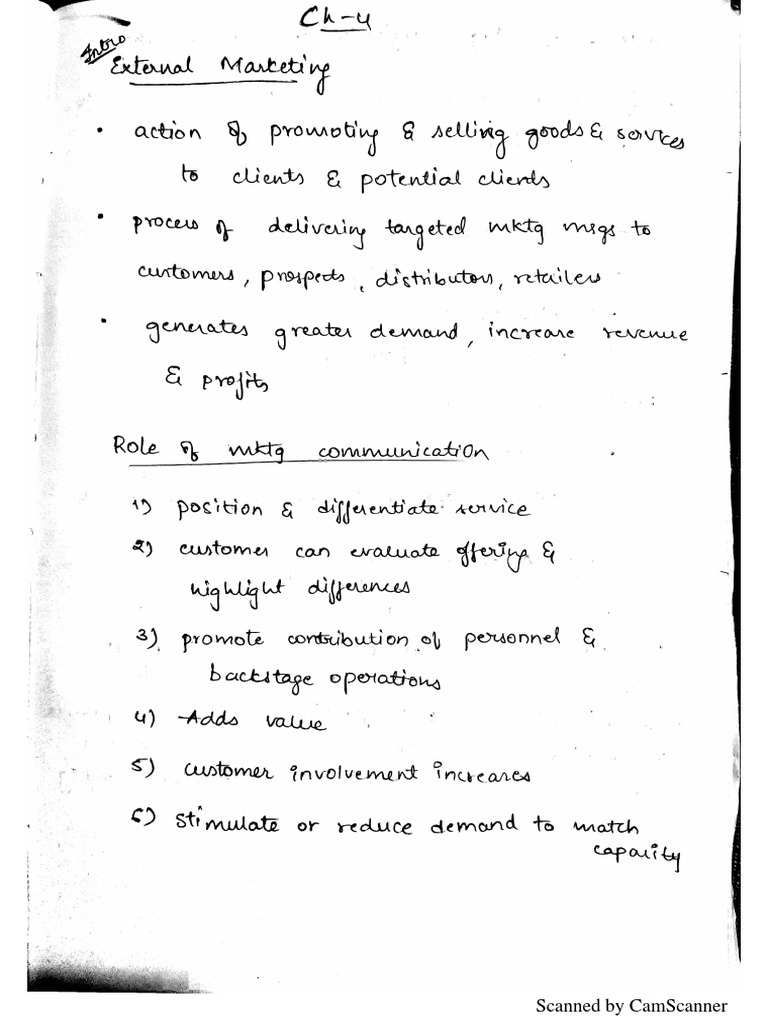 Ch-4
Intro
External Marketing
• action of promoting & selling goods & services
to clients & potential clients
• process of delivering targeted mktg msgs to
customers, prospects, distributors, retailers
• generates greater demand, increase revenue
& profits
Role of mktg communication
1) position & differentiate service
2) customer can evaluate offering &
highlight differences
3) promote contribution of personnel &
backstage operations
4) Adds value
5) customer involvement increases
6) stimulate or reduce demand to match
capacity
Scanned by CamScanner